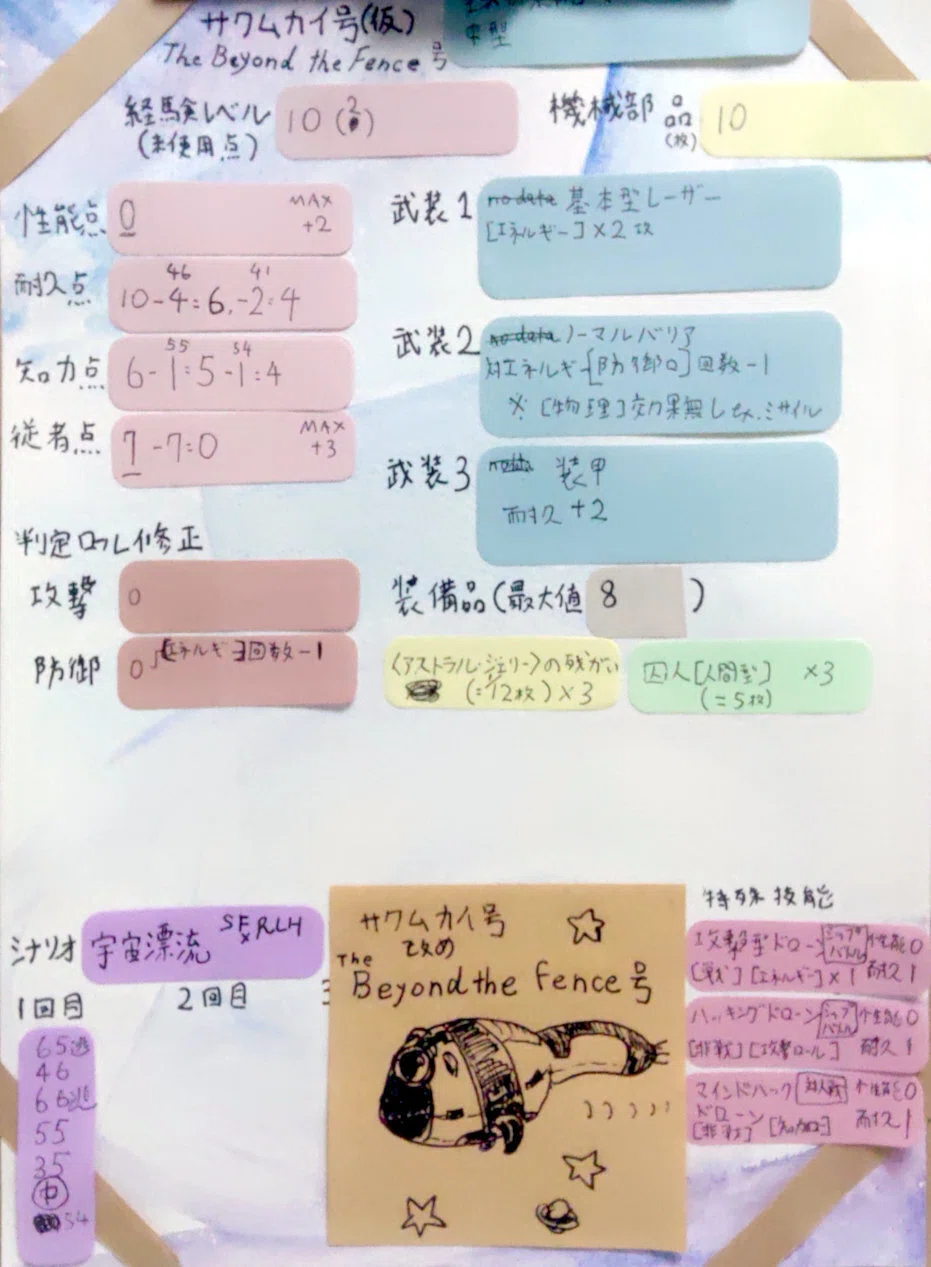 サワムカイ号(仮)
The Beyond the Fence号
車型
経験レベル 10(2)
(未使用点)
機械部品 10
(枚)
性能点 0 MAX
+2
耐久点 46 41
10-4=6,-2=4
知力点 55 54
6-1=5-1=4
従者点 7-7=0 MAX
+3
武装1 no data 基本型レーザー
[エネルギー]×2攻
武装2 no data ノーマルバリア
対エネルギー[防御ロ]回数-1
※[物理]効果無し ex.ミサイル
武装3 no data 装甲
耐久+2
判定ロール修正
攻撃 0
防御 0 [エネルギー]回数-1
装備品(最大値 8 )
〈アストラル・ジェリー〉の残がい
(=12枚)×3
囚人[人間型] ×3
(=5枚)
シナリオ 宇宙漂流 SF×RLH
1回目 2回目 3
65逃
46
66逃
55
35
中
54
サワムカイ号
改め
The
Beyond the Fence号
特殊技能
攻撃型ドローン シップバトル 性能0
[戦][エネルギー]×1 耐久1
ハッキングドローン シップバトル 性能0
[非戦][攻撃ロール] 耐久1
マインドハック 対人戦 性能0
ドローン 耐久1
[非戦] [知力ロ]